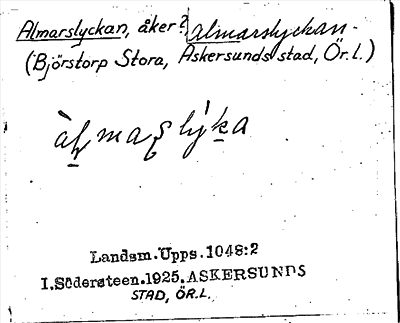 Almarslyckan, åker?, almarslyckan.
(Björstorp Stora, Askersunds stad, Ör.l.)
Landsm. Upps. 1048:2
I. Södersteen. 1925. ASKERSUNDS
STAD, ÖR.L.